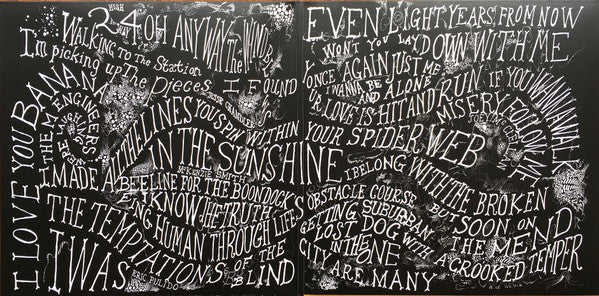 HIGH
OH ANYWAY THE WIND
WALKING TO THE STATION
I'm picking up the pieces I FOUND
JESSE CHANDLER
I LOVE YOU BANANA
ENGINEERS
ALL THE LINES YOU SPIN WITHIN YOUR SPIDER WEB
IN THE SUNSHINE I BELONG WITH THE BROKEN
McKENZIE SMITH
I MADE A BEELINE FOR THE BOONDOCKS
I KNOW THE TRUTH
HUMAN THROUGH LIFE'S OBSTACLE COURSE
THE TEMPTATIONS OF THE BLIND
I WAS
ERIC PULIDO
EVEN EIGHT YEARS FROM NOW
WONT YOU LAY DOWN WITH ME
ONCE AGAIN JUST ME
I WANNA BE ALONE
AND RUN IF YOU WANNA WALK
FOLLOW ME
OR LOVE IS HIT AND MISERY
JOEY McCLELLAN
BUT SOON ON THE MEND
GETTING SUBURBAN
LOST DOG WITH A CROOKED TEMPER
IN THE ONE
CITY ARE MANY